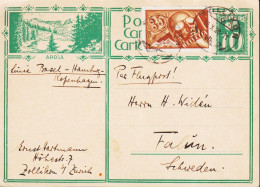 Pos
Cart
Cart
35
10
AROSA
Linie Basel–Hamburg–
Kopenhagen.
Per Flugpost!
Herrn H. Wilén
Falun.
Schweden.
Ernst Hartmann
Höhestr. 7
Zollikon b/ Zürich